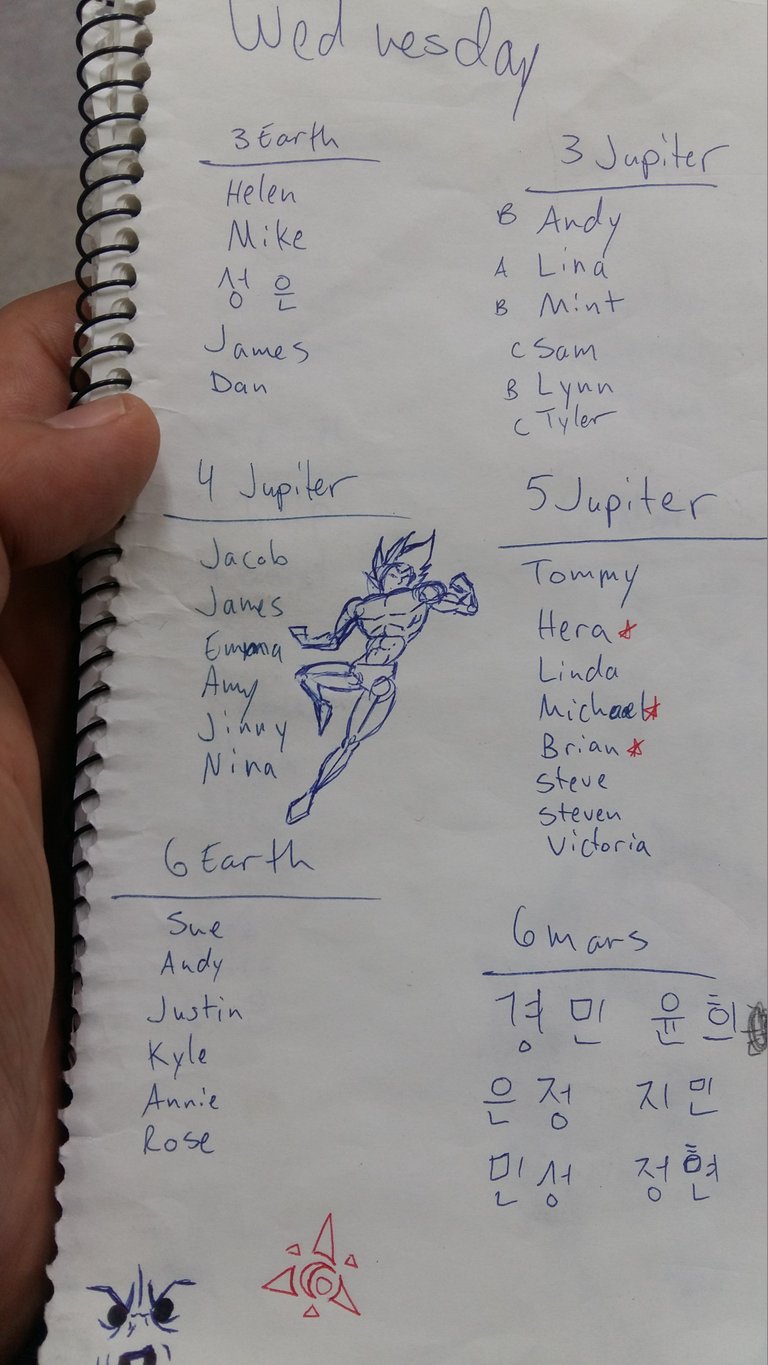 Wednesday
3 Earth
Helen
Mike
성은
James
Dan
3 Jupiter
B Andy
A Lina
B Mint
C Sam
B Lynn
C Tyler
4 Jupiter
Jacob
James
Emma
Amy
Jinny
Nina
5 Jupiter
Tommy
Hera
Linda
Michael
Brian
Steve
Steven
Victoria
6 Earth
Sue
Andy
Justin
Kyle
Annie
Rose
6 mars
경민 윤희
은정 지민
민성 정현